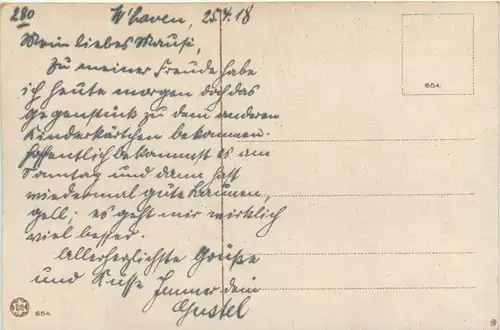 280
W'haven, 25.4.18
Mein liebes Mausi,
Zu meiner Freude habe
ich heute morgen doch das
Gegenstück zu dem anderen
Kinderkärtchen bekommen.
Hoffentlich bekommst es am
Sonntag und dann hast
wiedermal gute Launen,
gell; es geht mir wirklich
viel besser.
Allerherzlichste Grüße
und Küsse Immer dein
Gustel
654.
654.